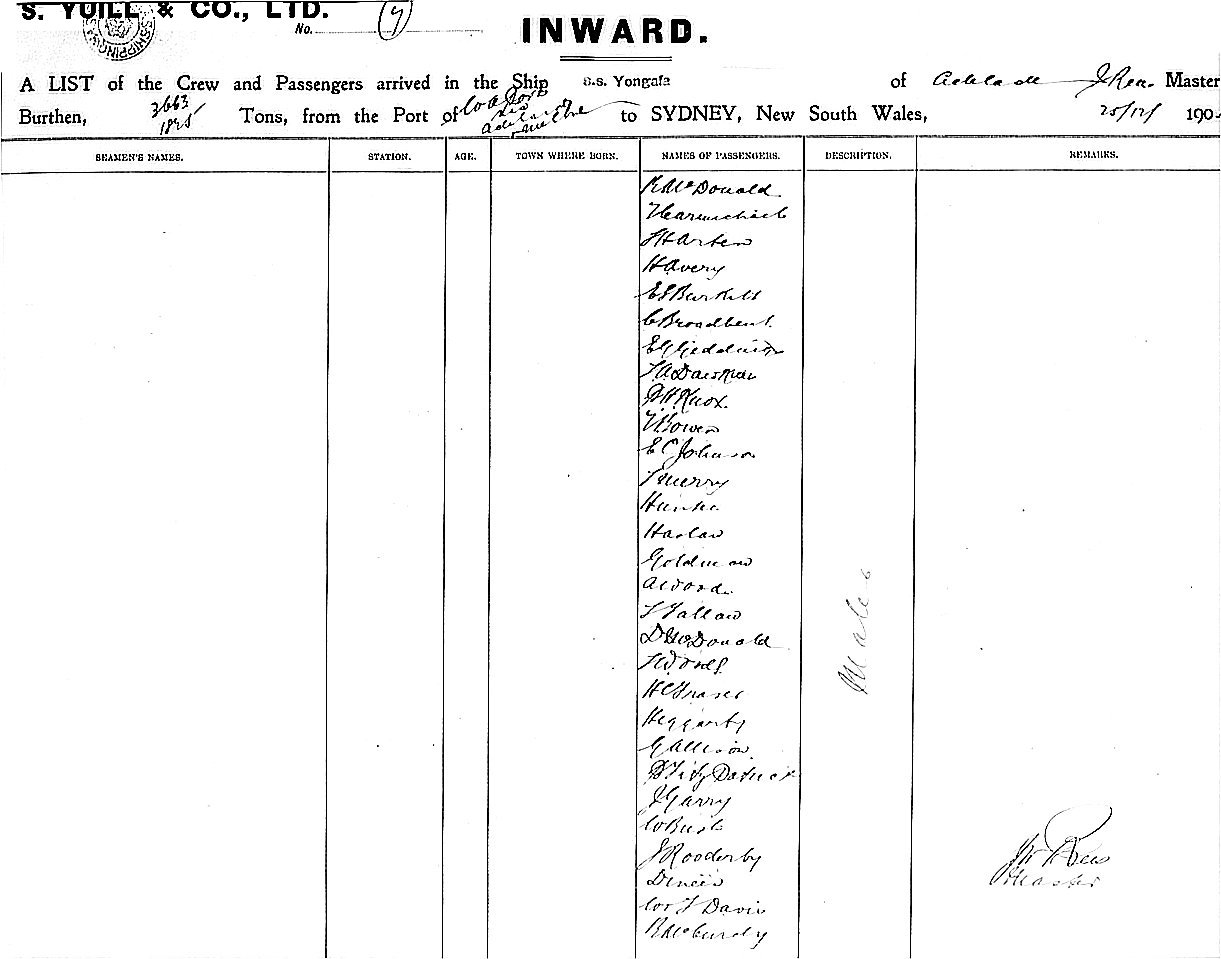 S. YUILL & CO., LTD.
SHIPPING
No. (7)
INWARD.
A LIST of the Crew and Passengers arrived in the Ship S.s. Yongala of Adelaide J Rees Master
Burthen, 3663 1825 Tons, from the Port of via Adelaide to SYDNEY, New South Wales, 25/12/ 190
SEAMEN'S NAMES. STATION. AGE. TOWN WHERE BORN. NAMES OF PASSENGERS. DESCRIPTION. REMARKS.
R McDonald
T Carmichael
Harten
H Avery
E S Burkett
C Broadbent
E G Geddings
H Knox
Bowen
E C Johnson
Hunter
Harlow
Goldman
A Woods
T Fallaw
D McDonald
T Woods
H C Fraser
Heggarty
G Allison
P Fitz Patrick
J Garry
W Bush
J Rooderby
Davis
R McCurdy
Males
Rees
Master